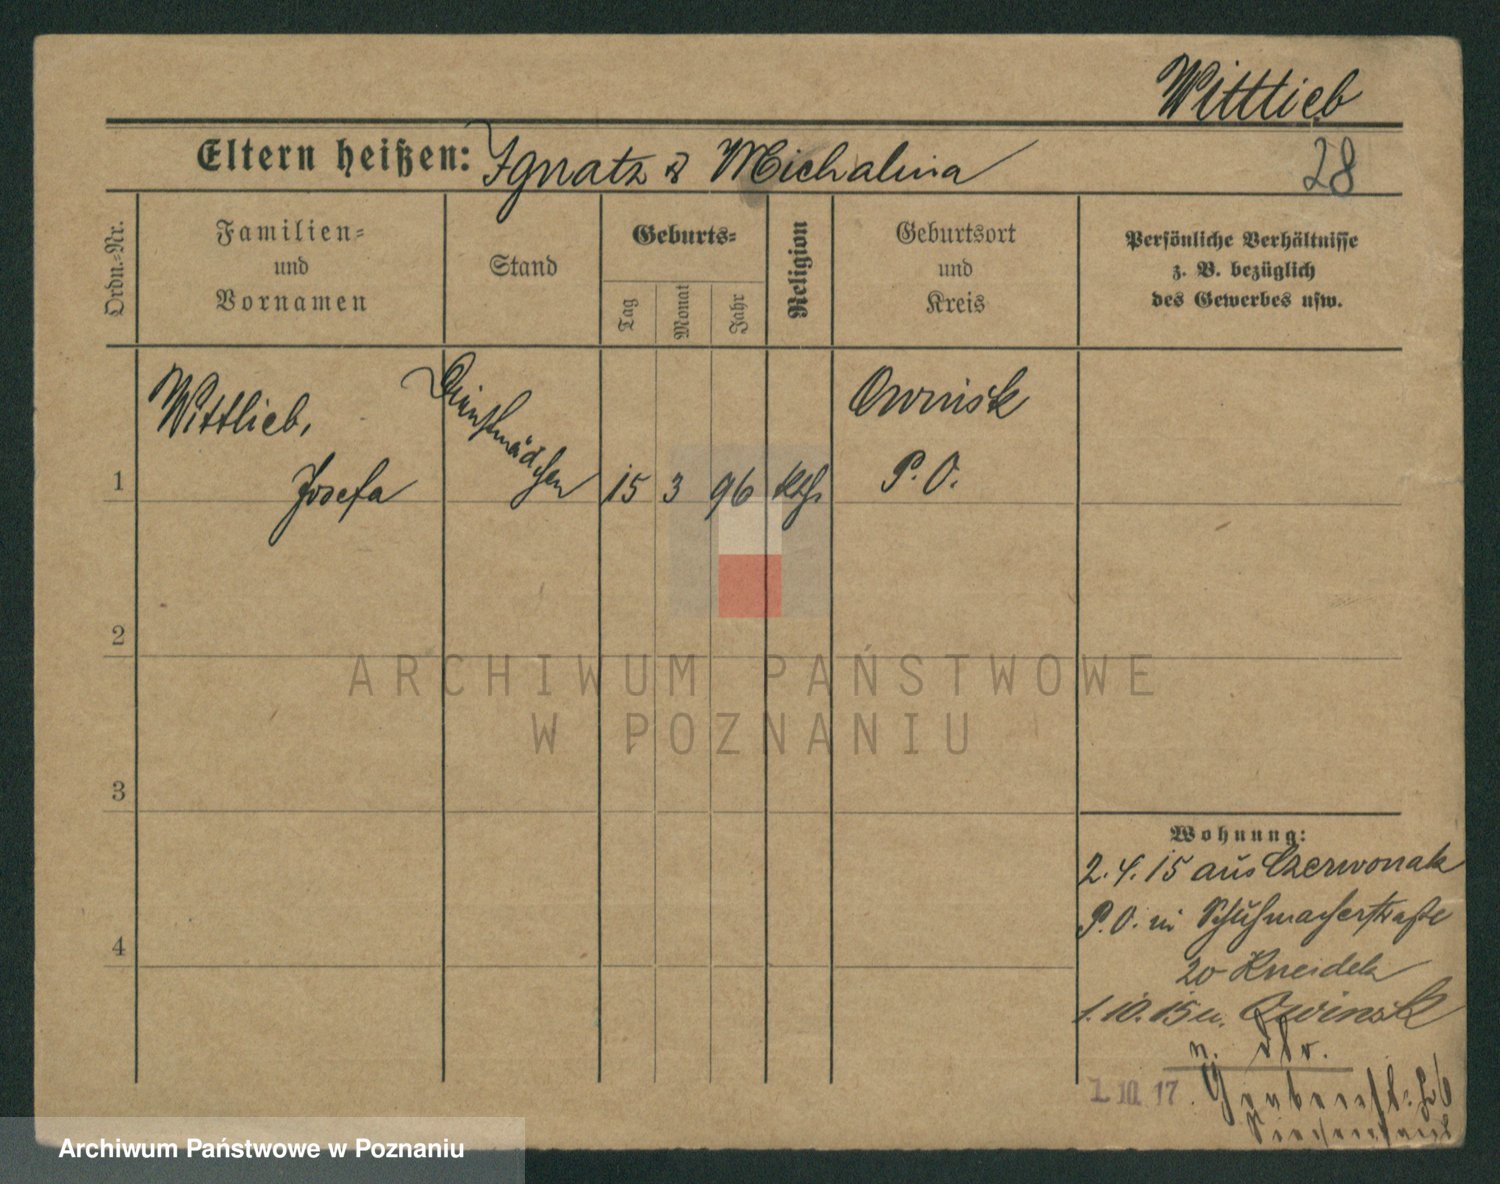 Wittlieb
Eltern heißen: Ignatz & Michalina
28
Ordn.=Nr.
Familien=
und
Vornamen
Stand
Geburts=
Tag
Monat
Jahr
Religion
Geburtsort
und
Kreis
Persönliche Verhältnisse
z. B. bezüglich
des Gewerbes usw.
1
Wittlieb,
Josefa
Dienstmädchen
15
3
96
kth.
Owinsk
P. O.
2
3
4
Wohnung:
2. 4. 15 aus Czerwonak
P. O. in Schuhmacherstraße
20 Kneidek
1. 10. 15 n. Owinsk
1. III 17.
ARCHIWUM PAŃSTWOWE
W POZNANIU
Archiwum Państwowe w Poznaniu